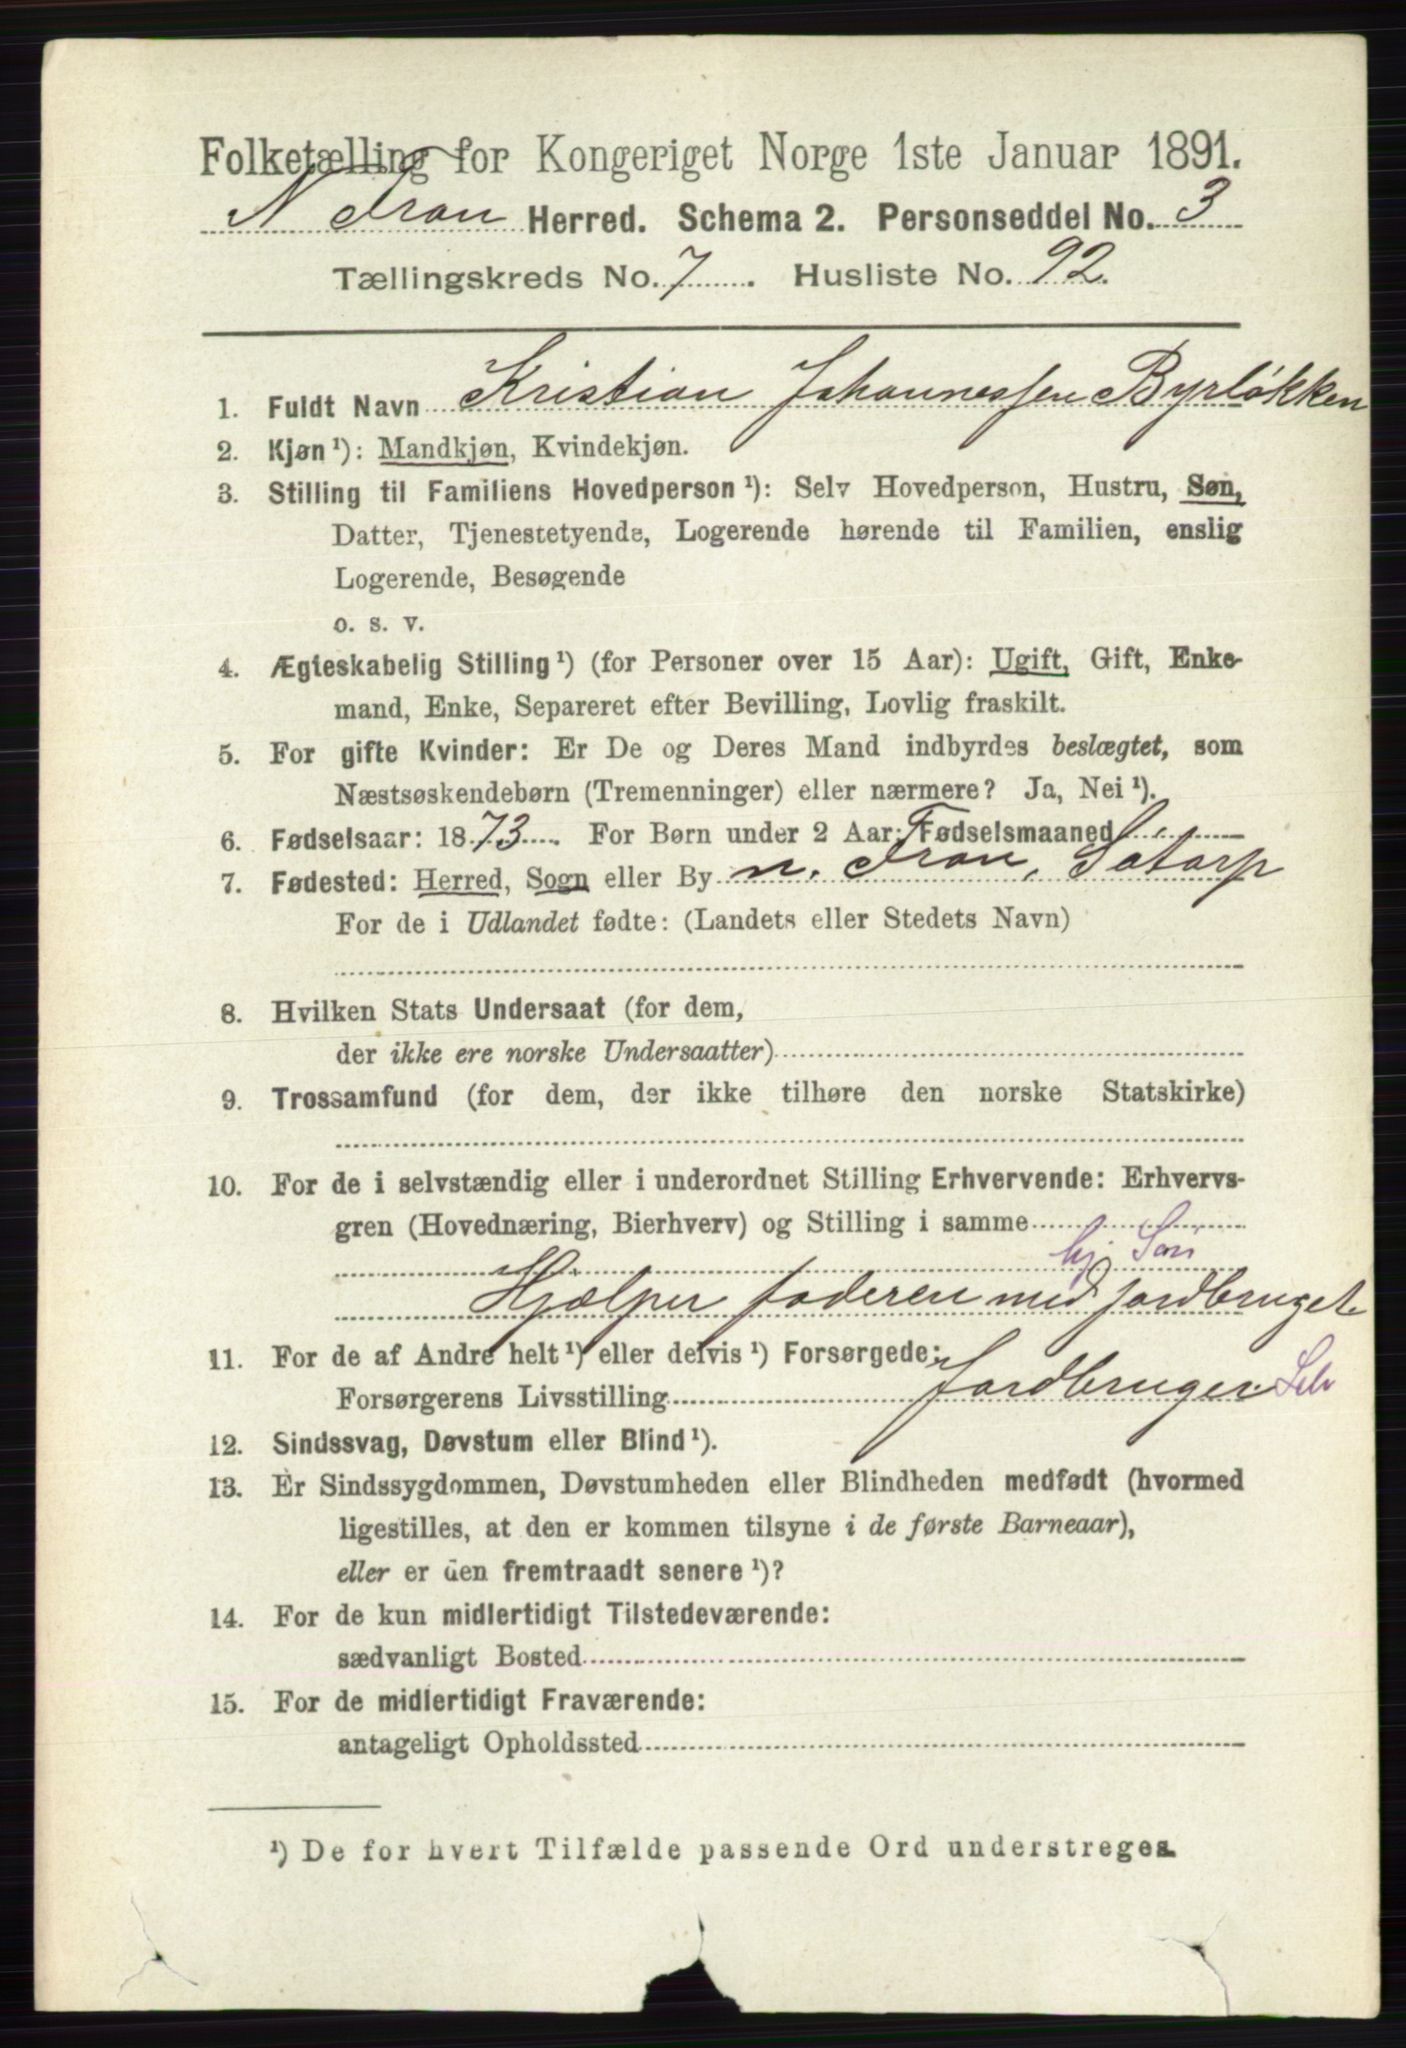 Folketælling for Kongeriget Norge 1ste Januar 1891.
N Fron Herred. Schema 2. Personseddel No. 3
Tællingskreds No. 7. Husliste No. 92.
1. Fuldt Navn Kristian Johannessen Byrløkken
2. Kjøn¹): Mandkjøn, Kvindekjøn.
3. Stilling til Familiens Hovedperson¹): Selv Hovedperson, Hustru, Søn,
Datter, Tjenestetyende, Logerende hørende til Familien, enslig
Logerende, Besøgende
o. s. v.
4. Ægteskabelig Stilling¹) (for Personer over 15 Aar): Ugift, Gift, Enke-
mand, Enke, Separeret efter Bevilling, Lovlig fraskilt.
5. For gifte Kvinder: Er De og Deres Mand indbyrdes beslægtet, som
Næstsøskendebørn (Tremenninger) eller nærmere? Ja, Nei¹).
6. Fødselsaar: 1873. For Børn under 2 Aar: Fødselsmaaned
7. Fødested: Herred, Sogn eller By n. Fron, Satorp
For de i Udlandet fødte: (Landets eller Stedets Navn)
8. Hvilken Stats Undersaat (for dem,
der ikke ere norske Undersaatter)
9. Trossamfund (for dem, der ikke tilhøre den norske Statskirke)
10. For de i selvstændig eller i underordnet Stilling Erhvervende: Erhvervs-
gren (Hovednæring, Bierhverv) og Stilling i samme
hj. Søn
Hjælper faderen med jordbruget
11. For de af Andre helt¹) eller delvis¹) Forsørgede:
Forsørgerens Livsstilling Jordbruger. Selv
12. Sindssvag, Døvstum eller Blind¹).
13. Er Sindssygdommen, Døvstumheden eller Blindheden medfødt (hvormed
ligestilles, at den er kommen tilsyne i de første Barneaar),
eller er den fremtraadt senere¹)?
14. For de kun midlertidigt Tilstedeværende:
sædvanligt Bosted
15. For de midlertidigt Fraværende:
antageligt Opholdssted
¹) De for hvert Tilfælde passende Ord understreges.